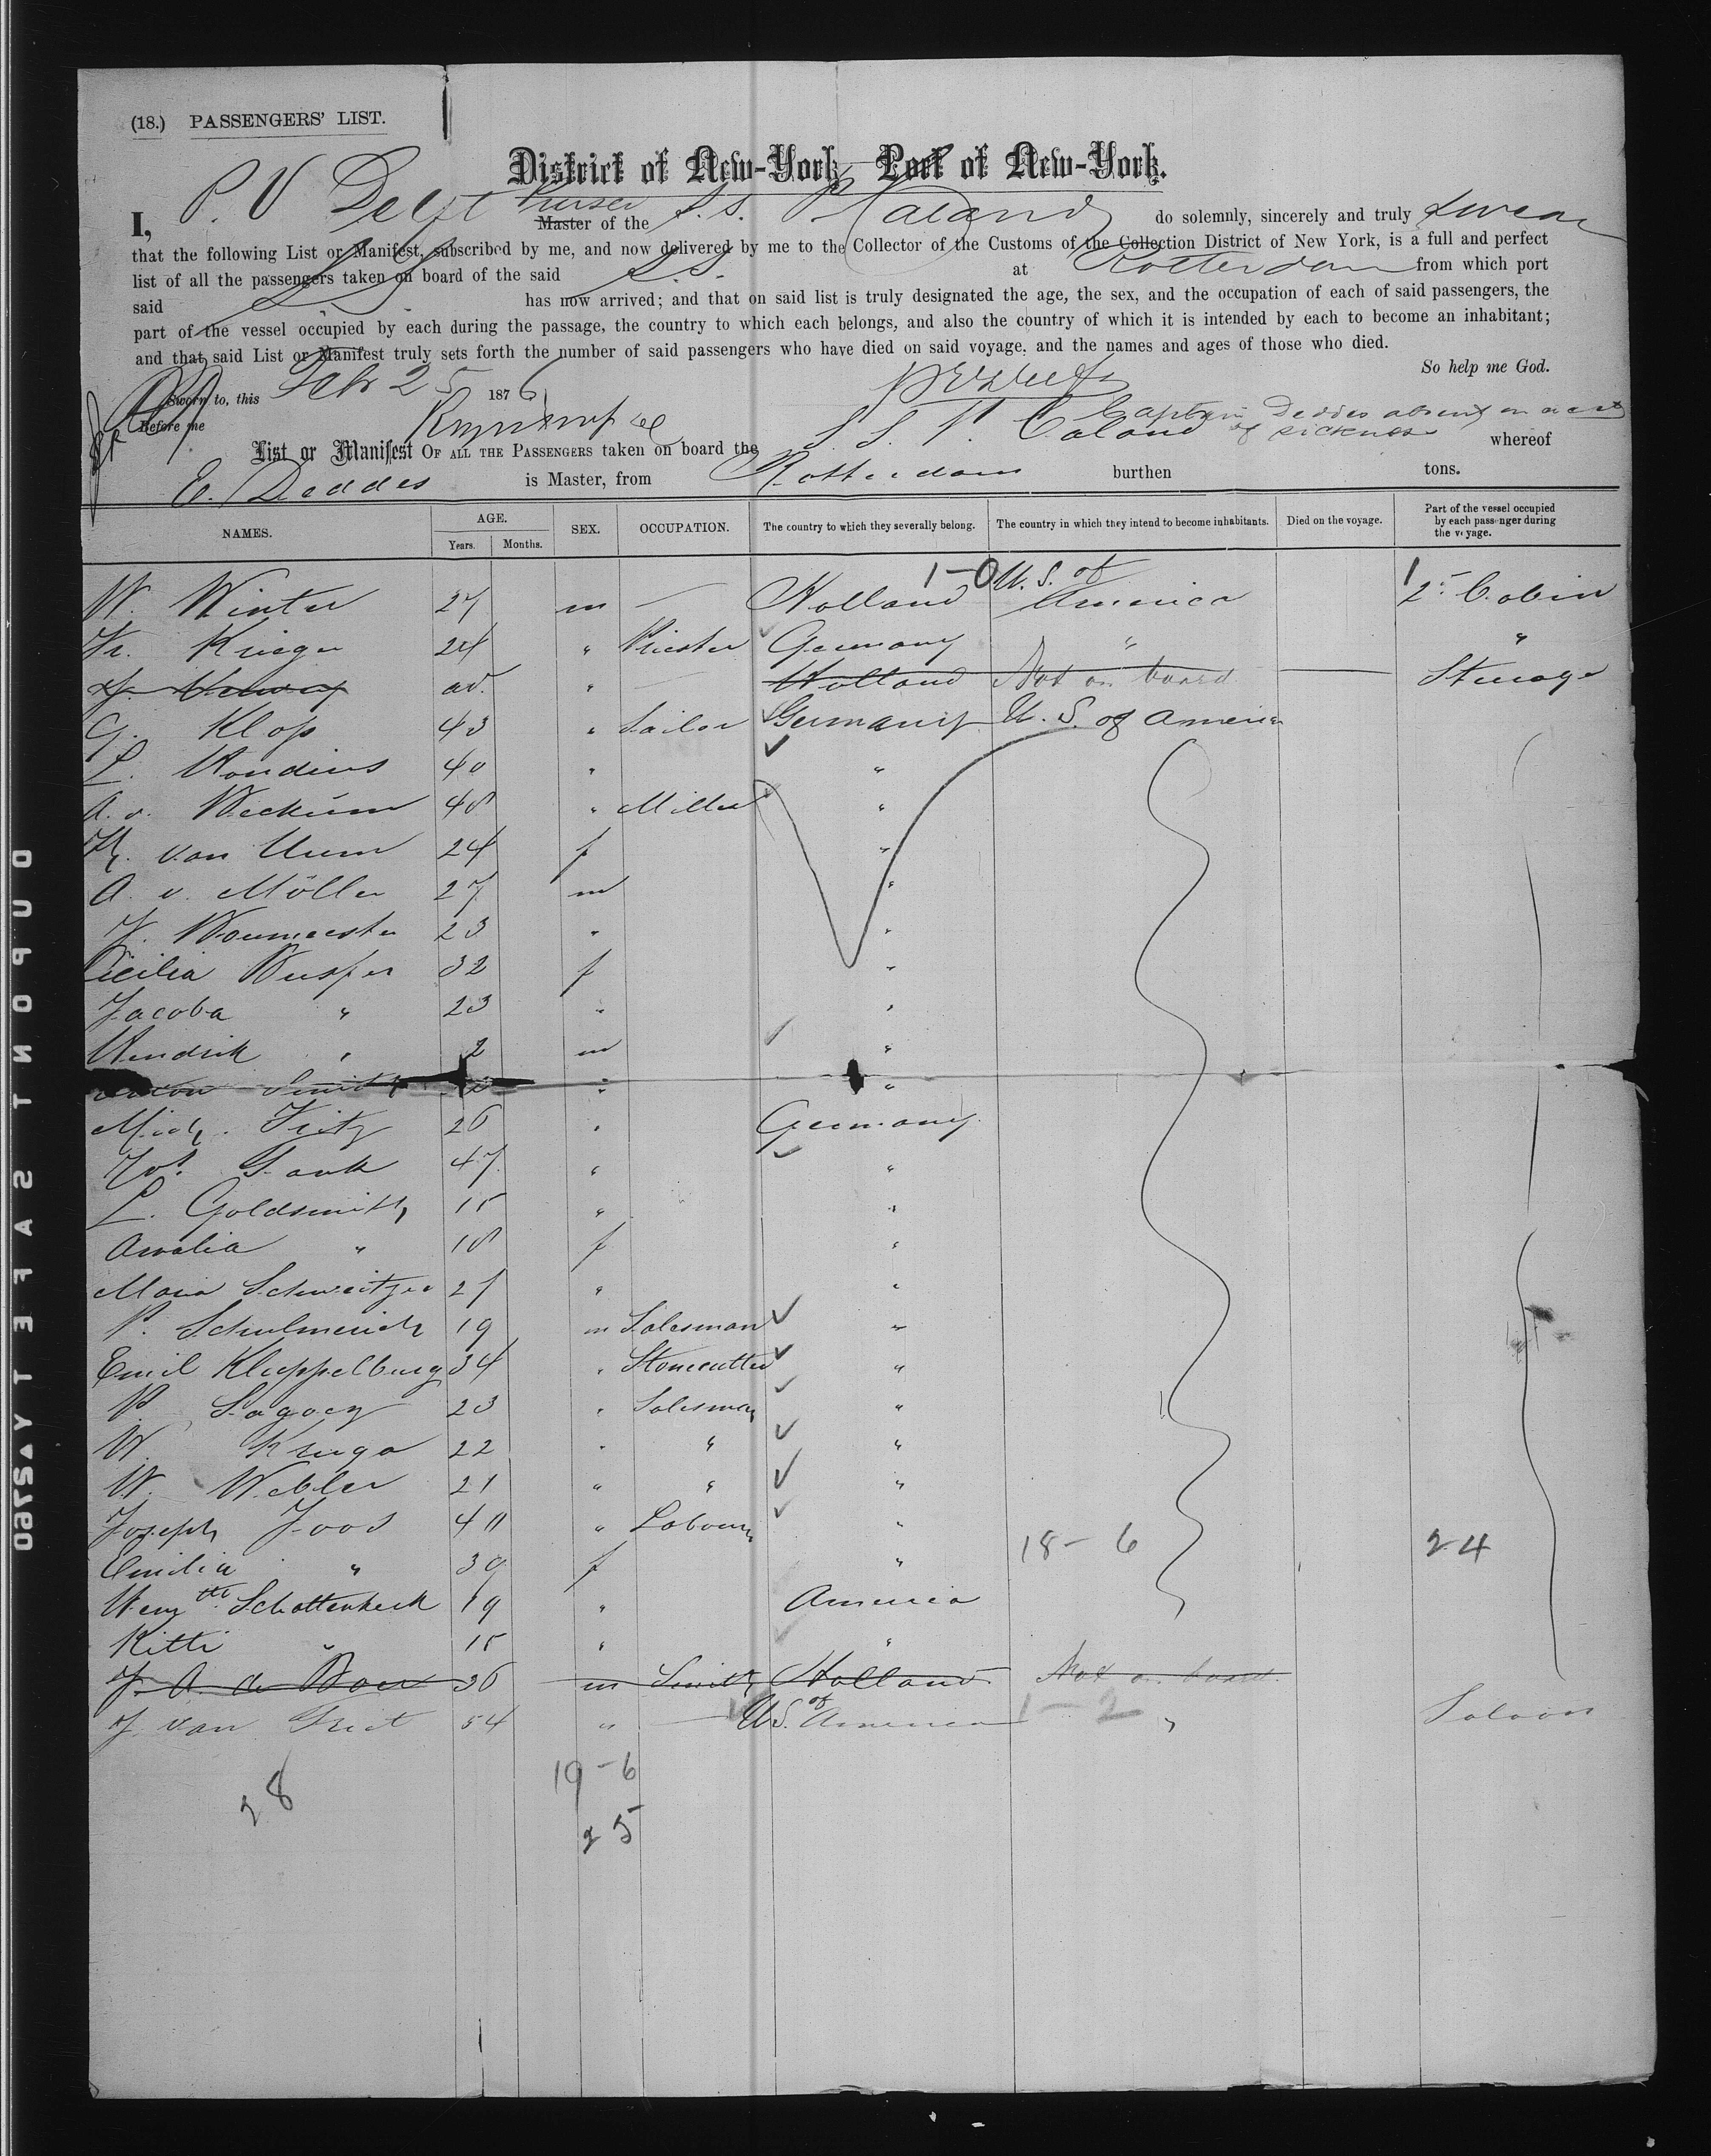 (18.) PASSENGERS' LIST.
District of New-York, Port of New-York.
I, P. V Delft Purser Master of the S.S. P. Caland do solemnly, sincerely and truly swear
that the following List or Manifest, subscribed by me, and now delivered by me to the Collector of the Customs of the Collection District of New York, is a full and perfect
list of all the passengers taken on board of the said S.S. at Rotterdam from which port
said SS has now arrived; and that on said list is truly designated the age, the sex, and the occupation of each of said passengers, the
part of the vessel occupied by each during the passage, the country to which each belongs, and also the country of which it is intended by each to become an inhabitant;
and that said List or Manifest truly sets forth the number of said passengers who have died on said voyage, and the names and ages of those who died.
So help me God.
Sworn to, this Feb 25 1876
Before me
Captain Deddes absent on acct of sickness
List or Manifest OF ALL THE PASSENGERS taken on board the S S. P. Caland whereof
E. Deddes is Master, from Rotterdam burthen tons.
NAMES. AGE. Years. Months. SEX. OCCUPATION. The country to which they severally belong. The country in which they intend to become inhabitants. Died on the voyage. Part of the vessel occupied by each passenger during the voyage.
1-0 1
W. Winter 27 m — Holland U. S. of America 2d Cabin
Fr. Krieger 24 " Priester Germany " "
ad. " — Holland Not on board — Steerage
G. Klop 43 " Sailor Germany U. S. of America
L. Kondius 40 " "
A. v. Weckum 48 " Miller "
H. van Uum 24 f "
A. v. Möller 27 m "
J. Woumeester 23 " "
Cicilia Wesper 32 f "
Jacoba " 23 " "
Hendrik " 2 m "
Smith " "
Mich. Fritz 26 " Germany
Jos. Sauk 47 " "
L. Goldsmith 15 " "
Amalia " 18 f "
Maria Schweitzer 27 " "
P. Schulmerich 19 m Salesman "
Emil Kluppelburg 34 " Stonecutter "
P. Sagoey 23 " Salesman "
W. Kruga 22 " " "
W. Webler 21 " " "
Joseph Joos 40 " Labourer "
Emilia " 39 f " 18-6 24
Schottenheck 19 " America
Kitti " 15 " "
J. A. de Boer 36 m Smith Holland Not on board.
J. van Griet 54 " — U.S. of America 1-2 " Saloon
28
19-6
25
DUPONT SAFETY A2760